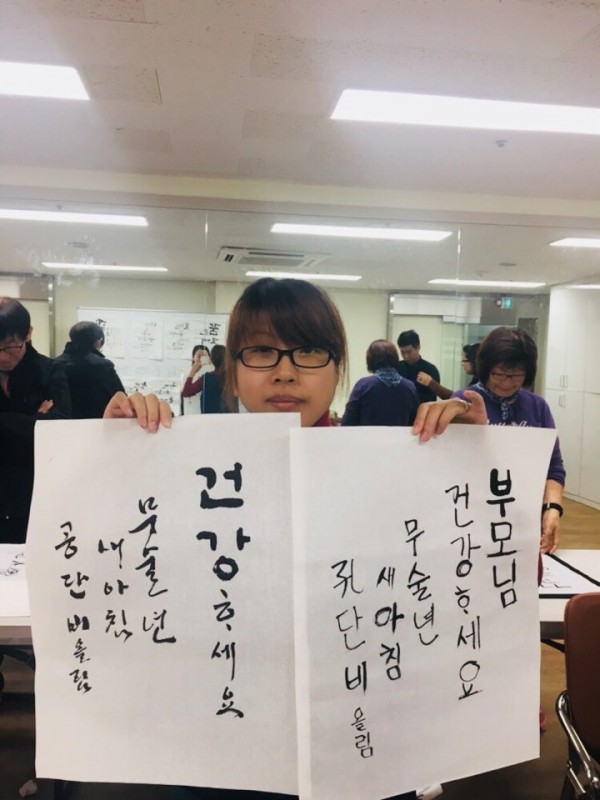 건강ᄒᆞ세요
무술년
새아침
공단비올림
부모님
건강ᄒᆞ세요
무술년
새아침
孔단비 올림